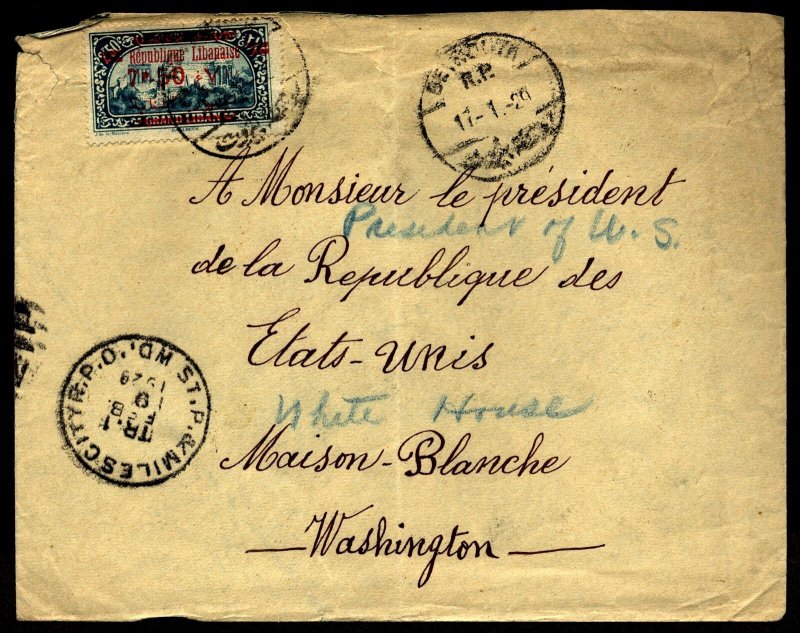 République Libanaise
GRAND LIBAN
BEYROUTH
R.P.
17-1.-29
A Monsieur le président
President of U.S.
de la Republique des
Etats-Unis
White House
Maison-Blanche
—Washington—
ST. P. & MILES CITY R.P.O. DM
TR.1
FEB
9
1929